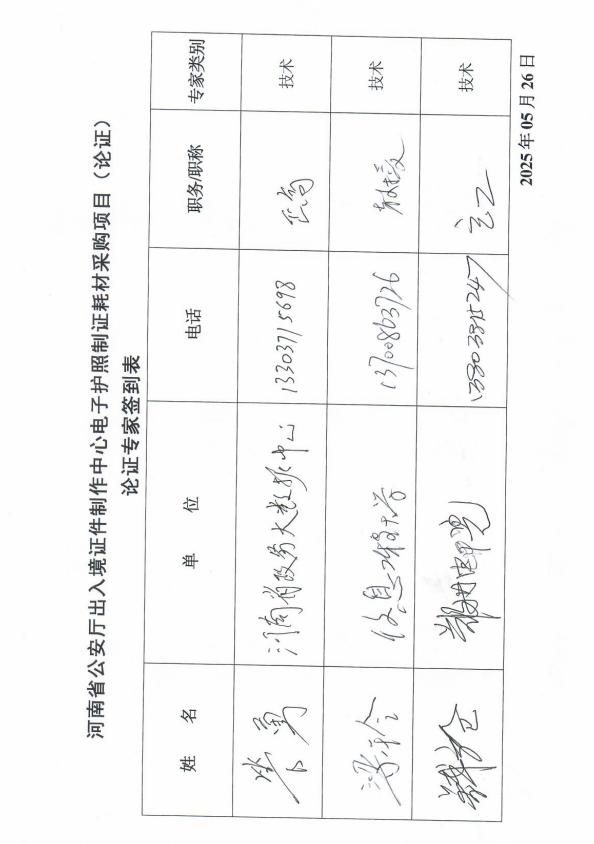 河南省公安厅出入境证件制作中心电子护照制证耗材采购项目（论证）
论证专家签到表
姓 名 单 位 电话 职务/职称 专家类别
勇 河南省政务大数据中心 13303715698 正高 技术
信息工程大学 13700863726 教授 技术
13803815247 高工 技术
2025年05月26日